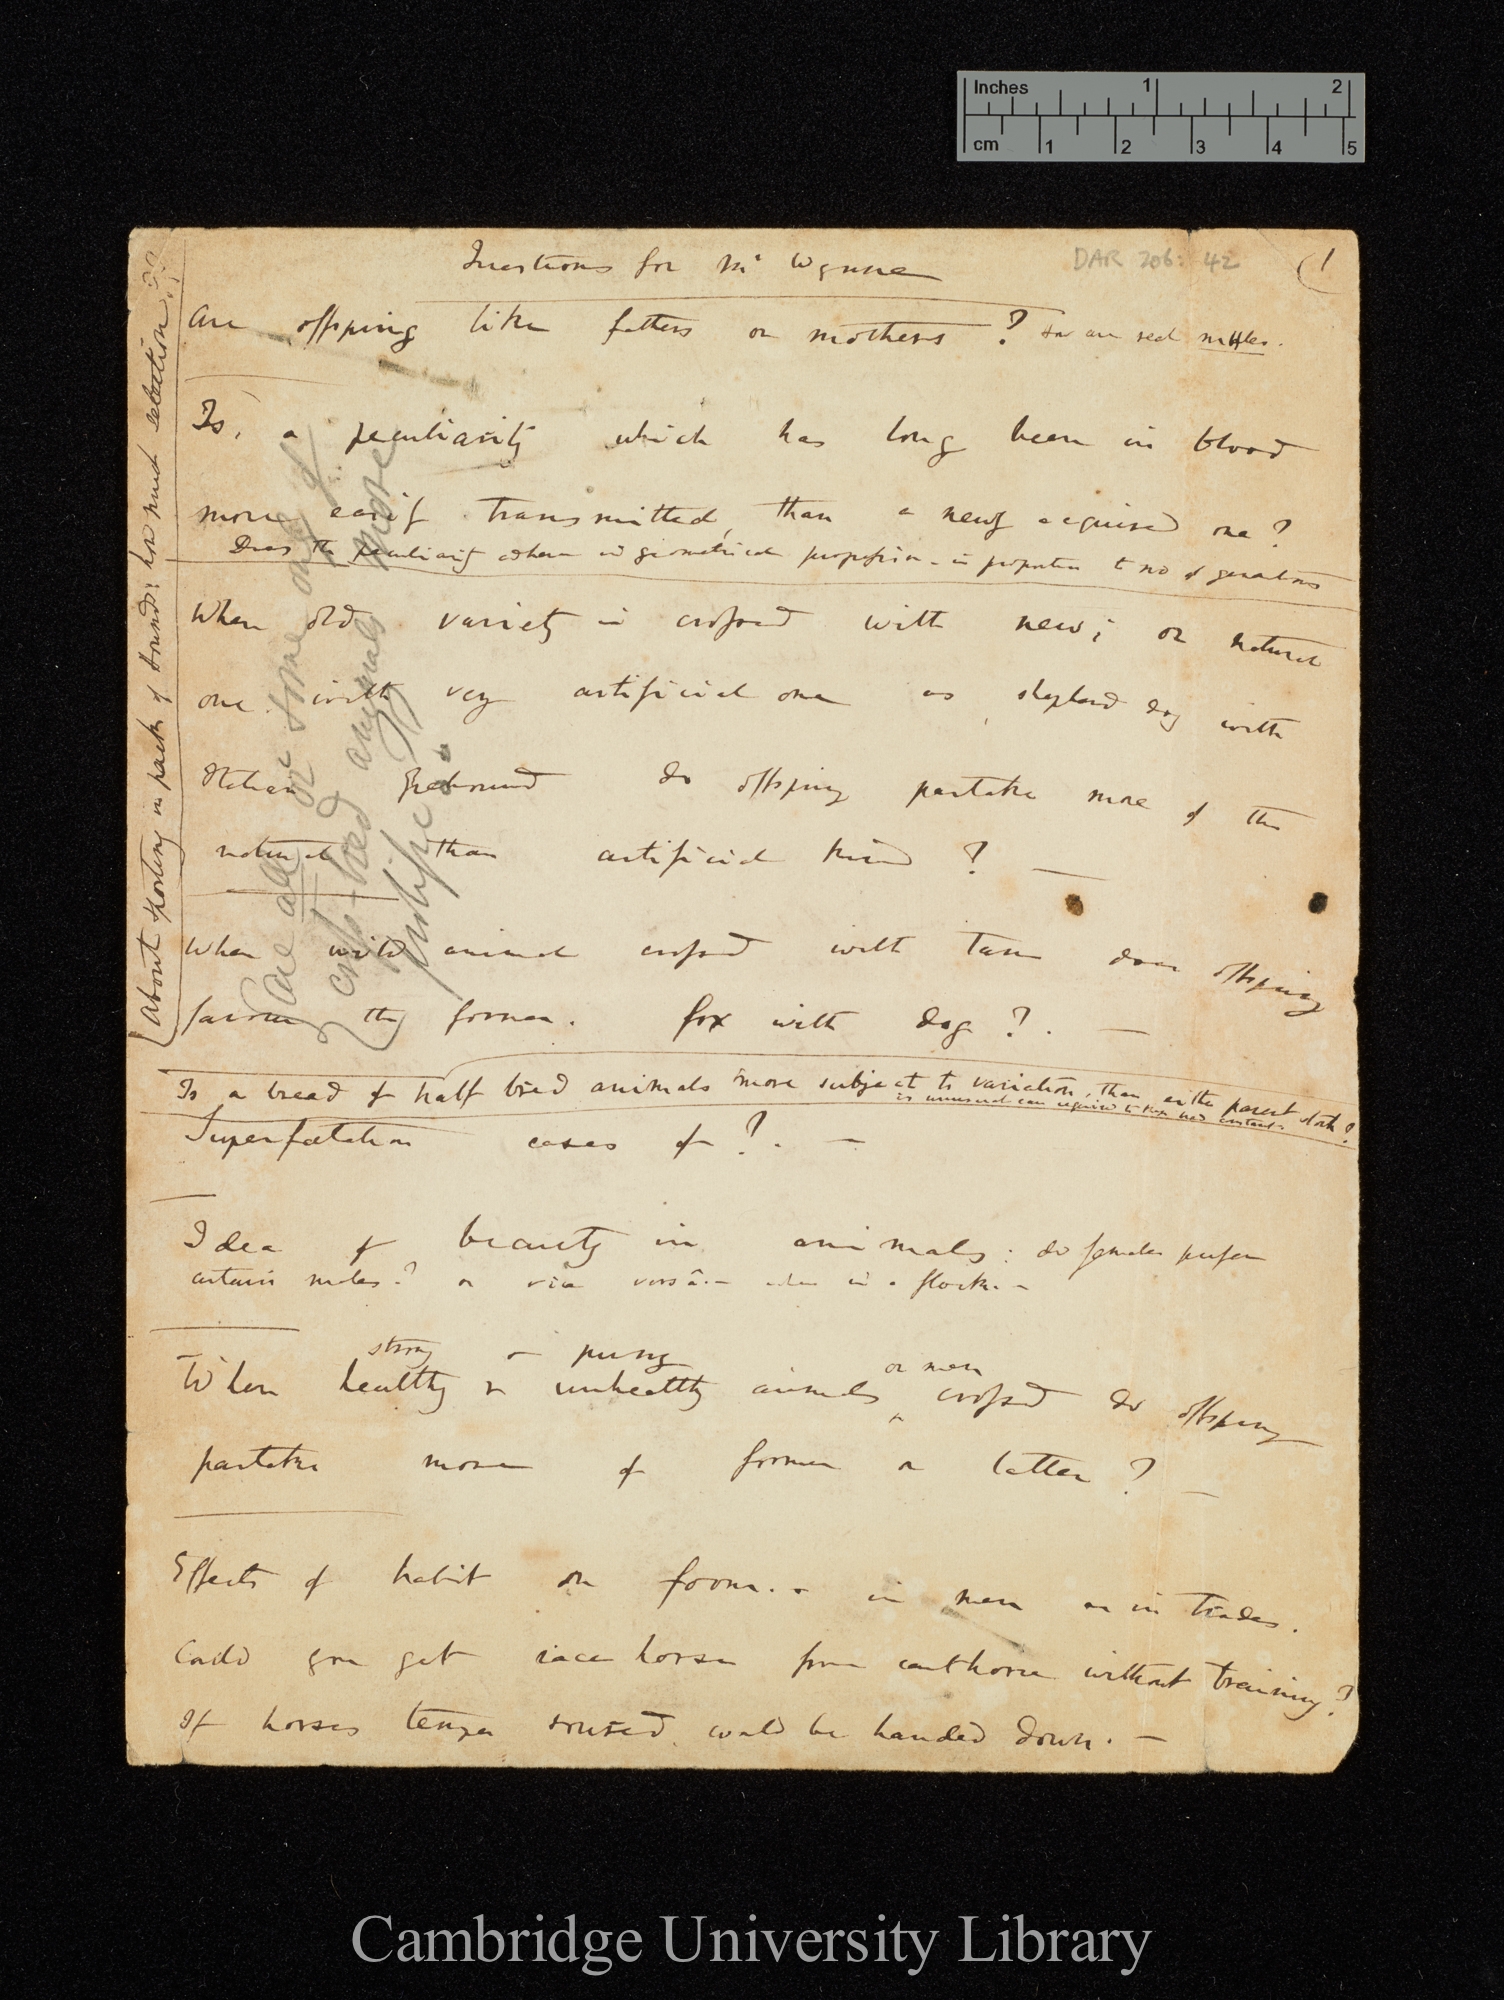 Inches 1 2
cm 1 2 3 4 5
Questions for Mr Wynne
DAR 206: 42
(1
Are offspring like fathers or mothers?
Is, a peculiarity which has long been in blood
more easily transmitted, than a newly acquired one?
Does the peculiarity adhere in geometrical proportion - in proportion to no of generations
When old variety is crossed with new; or natural
one with very artificial one as, shepherd dog with
Italian Greyhound do offspring partake more of the
natural than artificial kind? —
When wild animal crossed with tame does offspring
favour the former. fox with dog?. —
Is a breed of half bred animals more subject to variation, than either parent stock?
Superfœtation cases of?. —
Idea of beauty in animals: do females prefer
certain males? or vice versâ.— when in a flock.—
strong & puny
or men
When healthy & unhealthy animals ‸ crossed do offspring
partake more of former or latter? —
Effects of habit on form.- in men as in trades.
Could you get race horse from carthorse without training?
If horses temper soured would be handed down. —
About sporting in packs of hounds: how much selection??
(Are all or some only of
cross-bred animals more
prolific?
Cambridge University Library